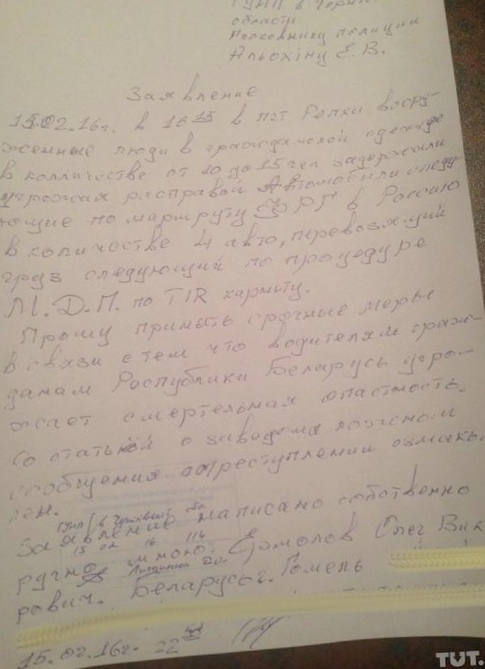 ГУНП в Черни
области
Полковнику полиции
Альохіну Е. В.
Заявление
15.02.16г. в 16 45 в пгт Репки воору-
женные люди в гражданской одежде
в колличестве от 10 до 15 чел задержали
угрожая расправой Автомобили следу
ющие по маршруту ФРГ в Россию
в количестве 4 авто, перевозящий
груз следующий по процедуре
М.Д.П. по TIR карнету.
Прошу принять срочные меры
в связи с тем что водителям граж-
данам Республики Беларусь угро-
жает смертельная опастность.
Со статьёй о заведомо ложном
сообщении о преступлении ознаком
лен.
Заявление написано собственно
ручно мною. Ермолов Олег Вик
рович. Беларусь г. Гомель
15.02.16г. 22
TUT.